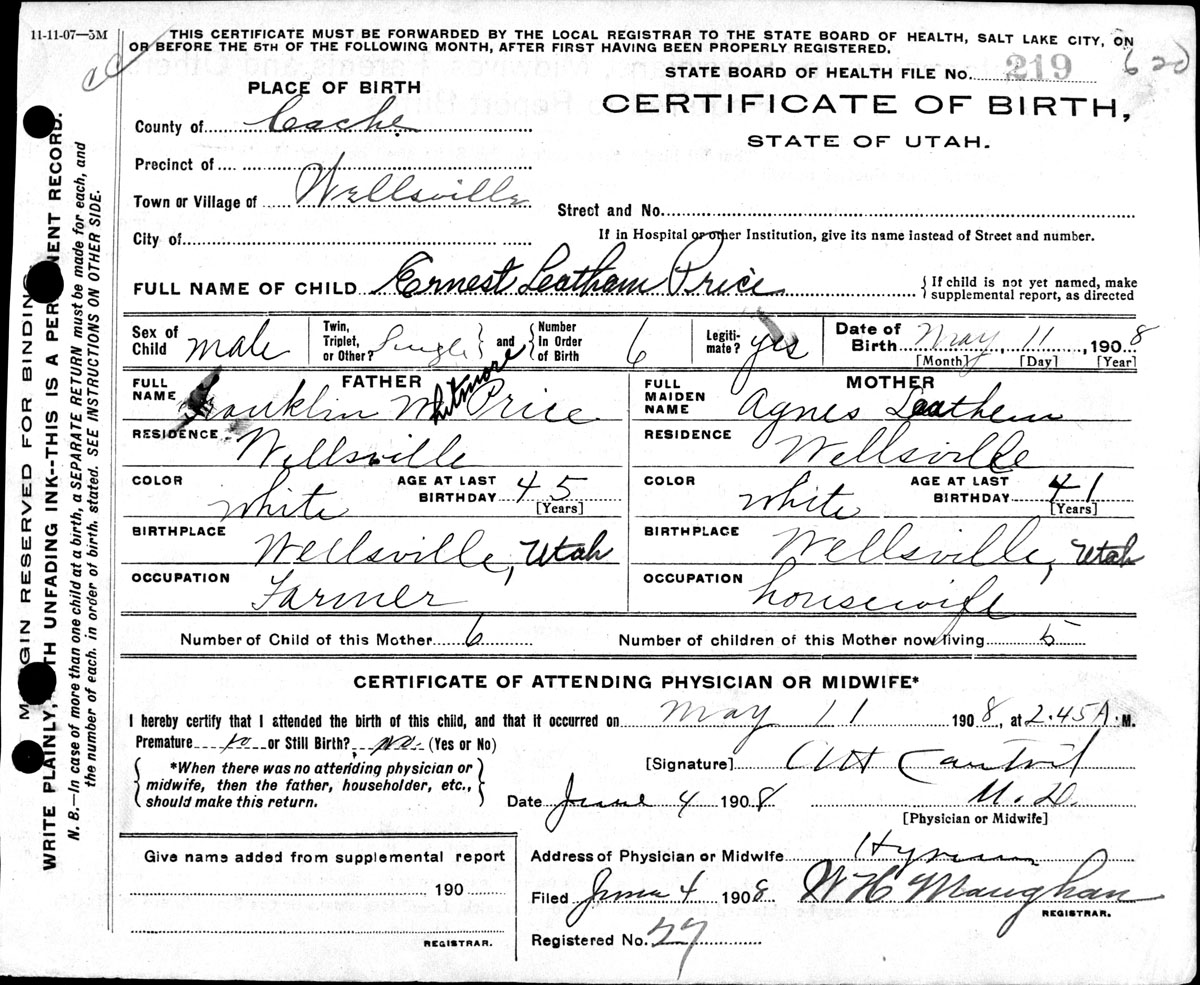 11-11-07—5M
THIS CERTIFICATE MUST BE FORWARDED BY THE LOCAL REGISTRAR TO THE STATE BOARD OF HEALTH, SALT LAKE CITY, ON
OR BEFORE THE 5TH OF THE FOLLOWING MONTH, AFTER FIRST HAVING BEEN PROPERLY REGISTERED.
STATE BOARD OF HEALTH FILE No. 219
PLACE OF BIRTH
CERTIFICATE OF BIRTH,
STATE OF UTAH.
County of Cache
Precinct of
Town or Village of Wellsville
Street and No.
City of
If in Hospital or other Institution, give its name instead of Street and number.
FULL NAME OF CHILD Ernest Leatham Price
{If child is not yet named, make
supplemental report, as directed
Sex of Child male
Twin, Triplet, or Other? Single } and { Number In Order of Birth 6
Legiti- mate? yes
Date of Birth May 11, 1908
[Month] [Day] [Year]
FATHER
FULL NAME Franklin Whitmore Price
RESIDENCE Wellsville
COLOR white AGE AT LAST BIRTHDAY 45 [Years]
BIRTHPLACE Wellsville, Utah
OCCUPATION Farmer
MOTHER
FULL MAIDEN NAME Agnes Leatham
RESIDENCE Wellsville
COLOR white AGE AT LAST BIRTHDAY 41 [Years]
BIRTHPLACE Wellsville, Utah
OCCUPATION housewife
Number of Child of this Mother 6 Number of children of this Mother now living 5
CERTIFICATE OF ATTENDING PHYSICIAN OR MIDWIFE*
I hereby certify that I attended the birth of this child, and that it occurred on May 11 1908, at 2.45 A.M.
Premature no or Still Birth? no (Yes or No)
{ *When there was no attending physician or
midwife, then the father, householder, etc.,
should make this return. }
[Signature]
M.D.
Date June 4 1908
[Physician or Midwife]
Give name added from supplemental report
190
REGISTRAR.
Address of Physician or Midwife Hyrum
Filed June 4 1908 W H Maughan
REGISTRAR.
Registered No. 27
MARGIN RESERVED FOR BINDING.
WRITE PLAINLY, WITH UNFADING INK--THIS IS A PERMANENT RECORD.
N. B.—In case of more than one child at a birth, a SEPARATE RETURN must be made for each, and
the number of each, in order of birth, stated. SEE INSTRUCTIONS ON OTHER SIDE.